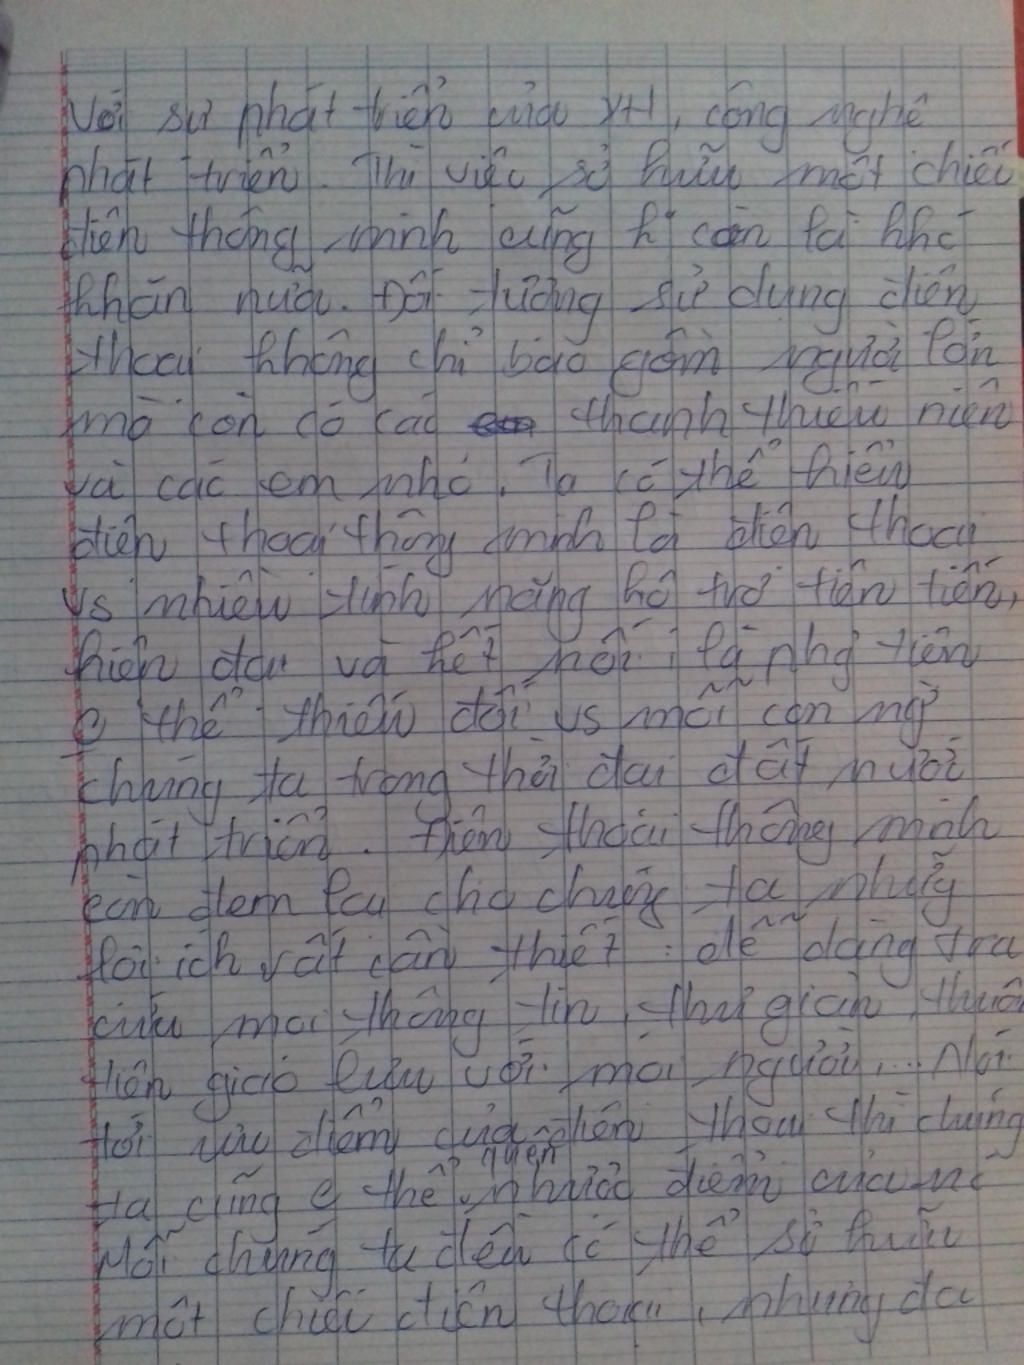 Với sự phát triển của XH, công nghệ
phát triển. Thì việc sở hữu một chiếc
điện thông minh cũng k còn là khó
khăn nữa. Đối tượng sử dụng điện
thoại không chỉ bao gồm người lớn
mà còn có các thanh thiếu niên
và các em nhỏ. Ta có thể hiểu
điện thoại thông minh là điện thoại
vs nhiều tính năng hỗ trợ tiên tiến,
hiện đại và kết nối, là phg tiện
thể thiếu đối vs mỗi con ng
chúng ta trong thời đại đất nước
phát triển. Điện thoại thông minh
còn đem lại cho chúng ta những
lợi ích rất cần thiết: dễ dàng tra
cứu mọi thông tin, thư giãn, thuận
tiện giao lưu với mọi người,... Nói
tới ưu điểm của điện thoại thì chúng
ta cũng thể quên nhược điểm của nó
Mỗi chúng ta đều có thể sở hữu
một chiếc điện thoại, nhưng đa